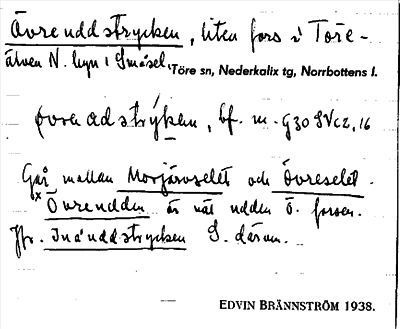 Övreuddstrycken, liten fors i Töre-
älven N. byn i Småsel.
Töre sn, Nederkalix tg, Norrbottens l.
øvra adstrýkən, bf. m. G30 SVc2,16
Går mellan Morjärvselet och Övreselet.
Övreudden är näs udden ö. forsen.
Jfr. Inåuddstrycken S. därom.
EDVIN BRÄNNSTRÖM 1938.